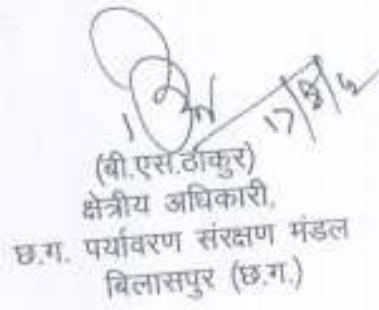 17/8/5
(बी.एस.ठाकुर)
क्षेत्रीय अधिकारी,
छ.ग. पर्यावरण संरक्षण मंडल
बिलासपुर (छ.ग.)